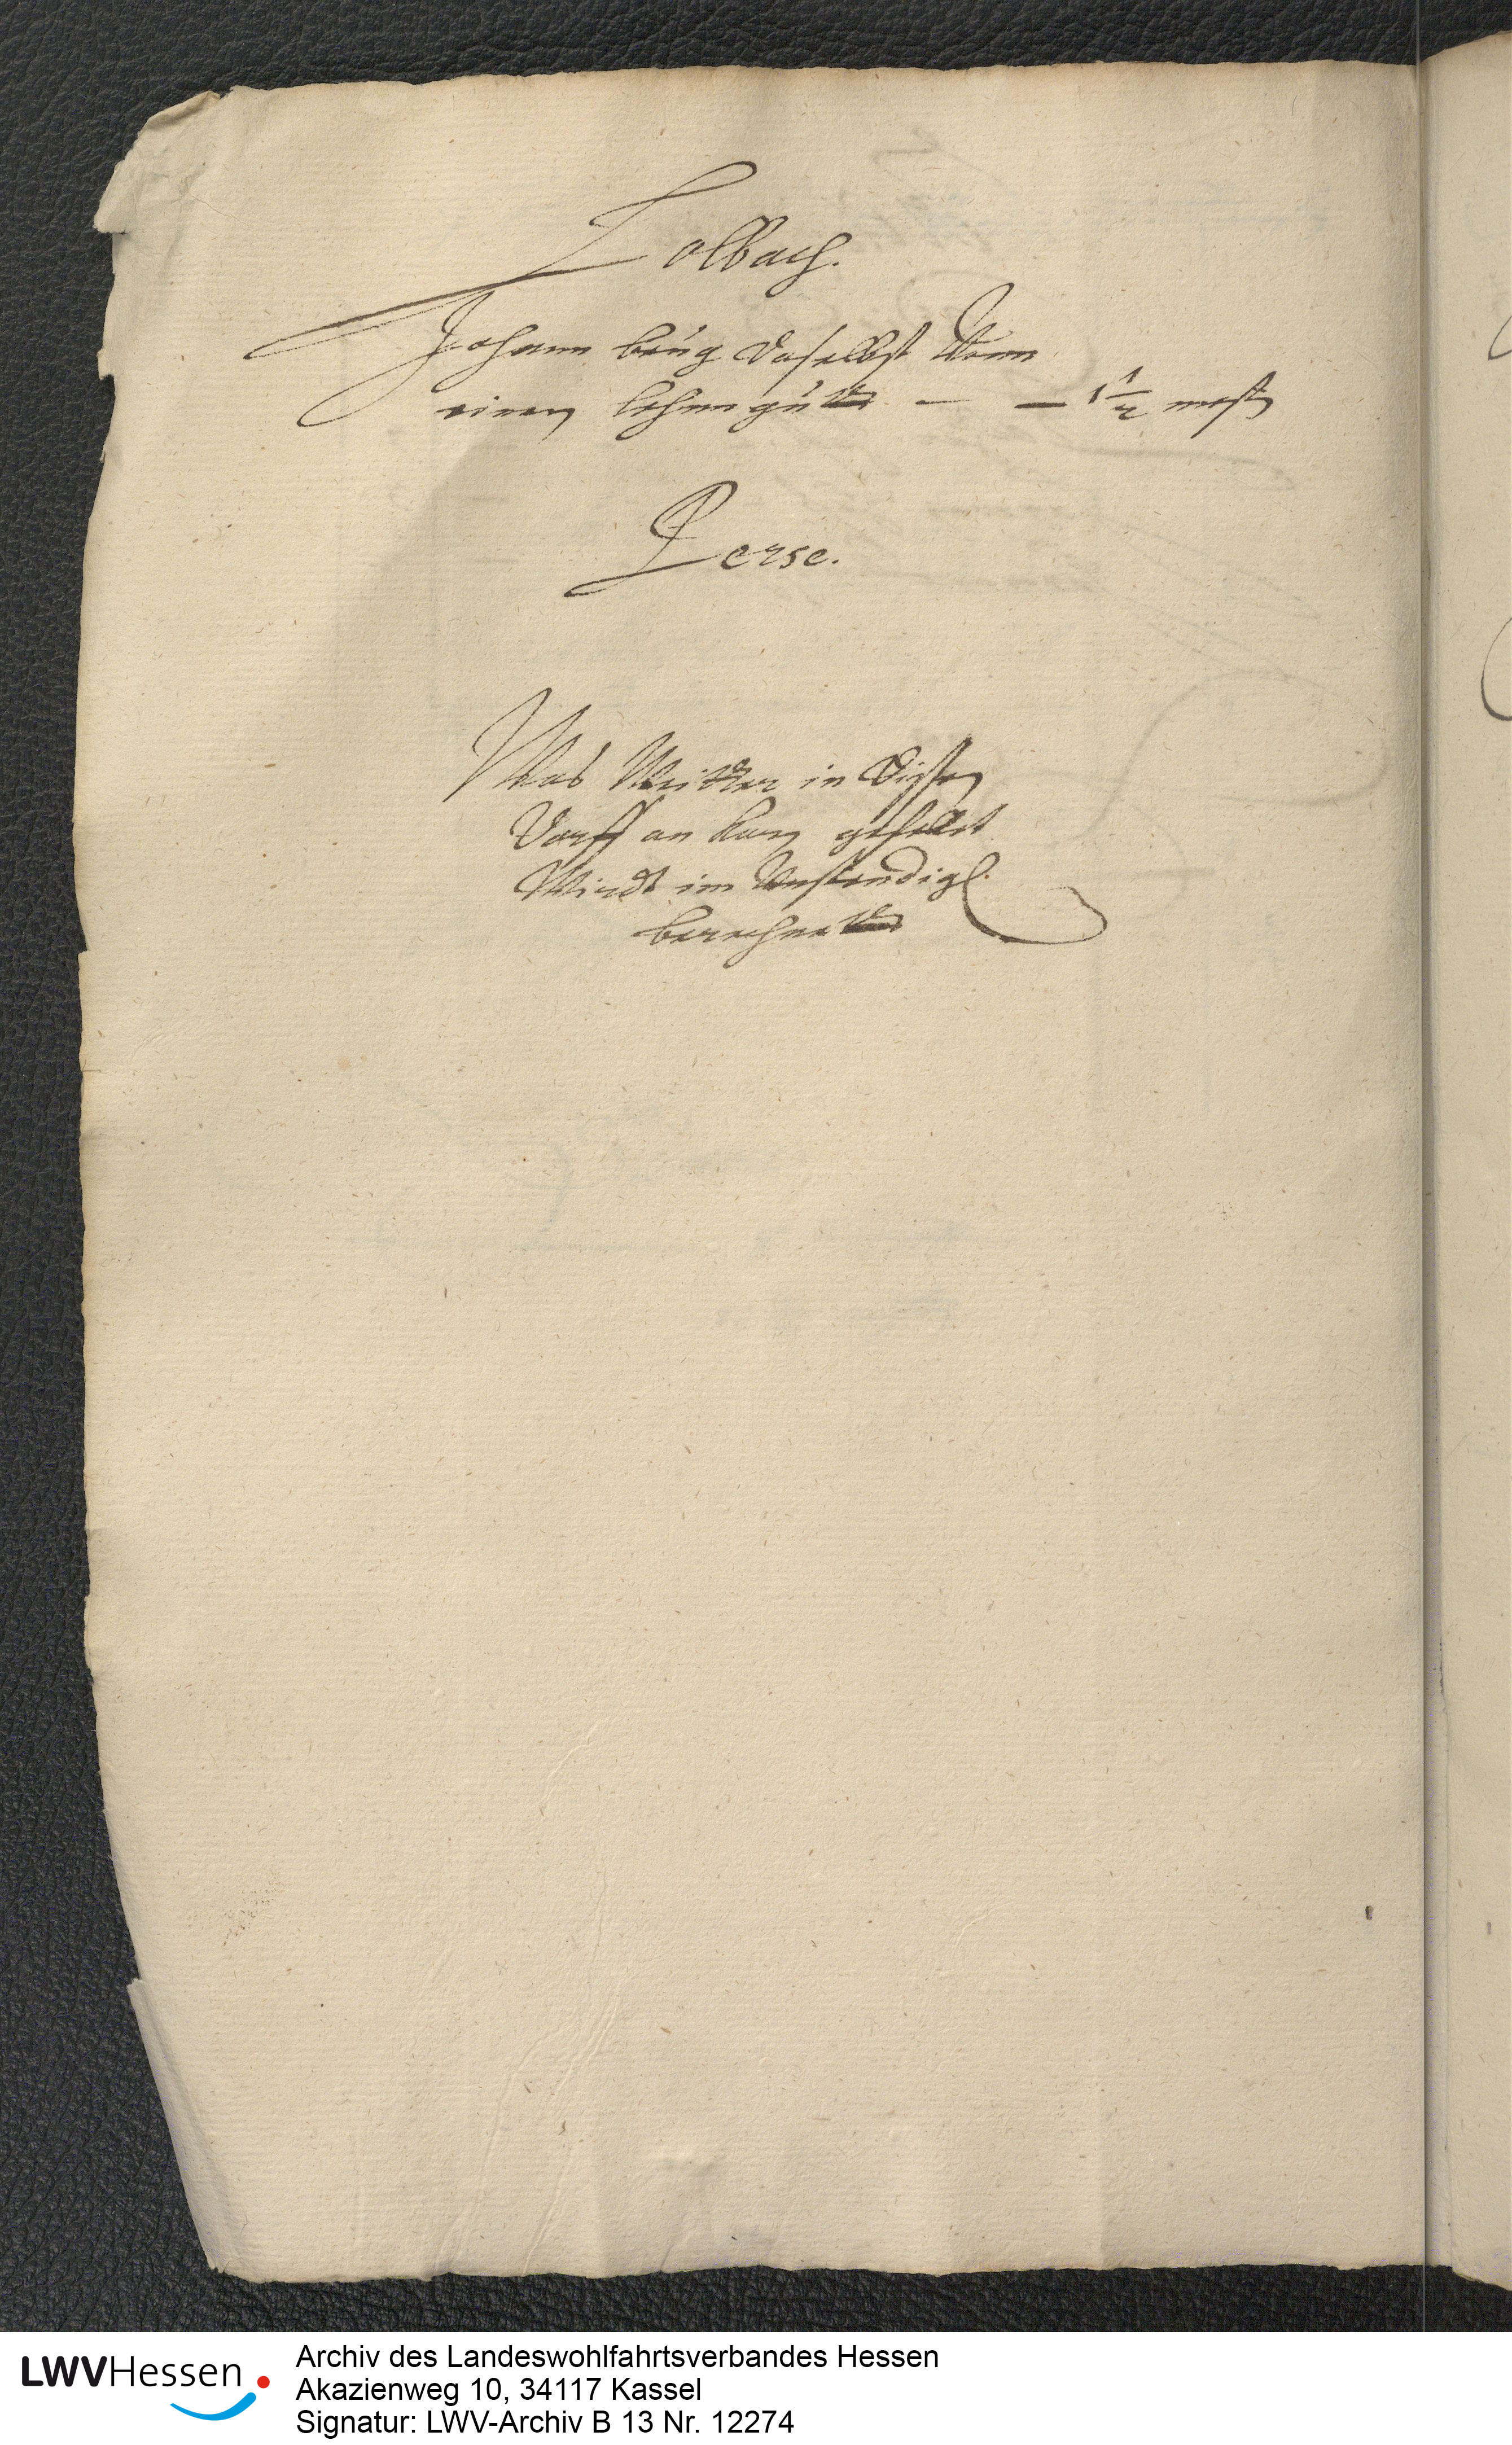 Lolbach.
Johann beüg daselbst Vonn
einem lehngütt — — 1 1/2 mest
Perse.
Was Weitter in diessem
Dorff an Korn gefelt
Wirdt im Unstendigl.
berechnett
LWVHessen
Archiv des Landeswohlfahrtsverbandes Hessen
Akazienweg 10, 34117 Kassel
Signatur: LWV-Archiv B 13 Nr. 12274